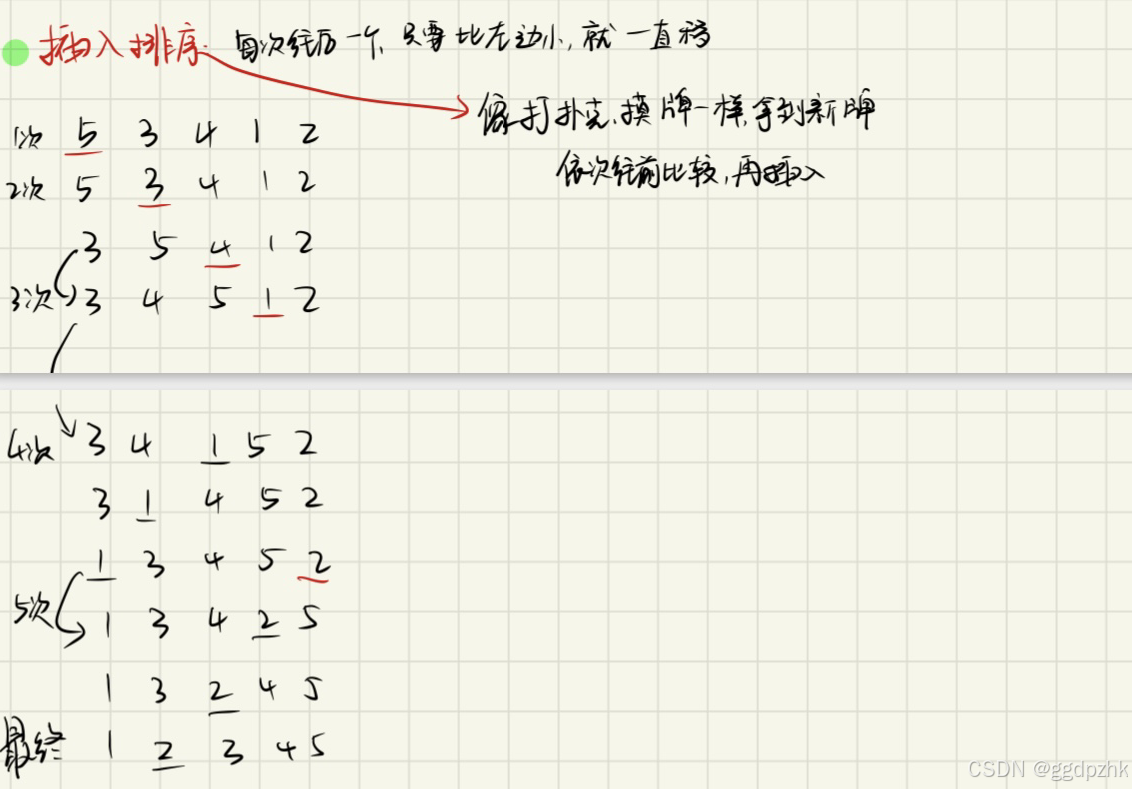 插入排序. 每次往后一个, 只要比左边小, 就一直移
像打扑克、摸牌一样, 拿到新牌
依次往前比较, 再插入
1次 5 3 4 1 2
2次 5 3 4 1 2
3 5 4 1 2
3次 3 4 5 1 2
4次 3 4 1 5 2
3 1 4 5 2
1 3 4 5 2
5次 1 3 4 2 5
1 3 2 4 5
最终 1 2 3 4 5
CSDN @ggdpzhk